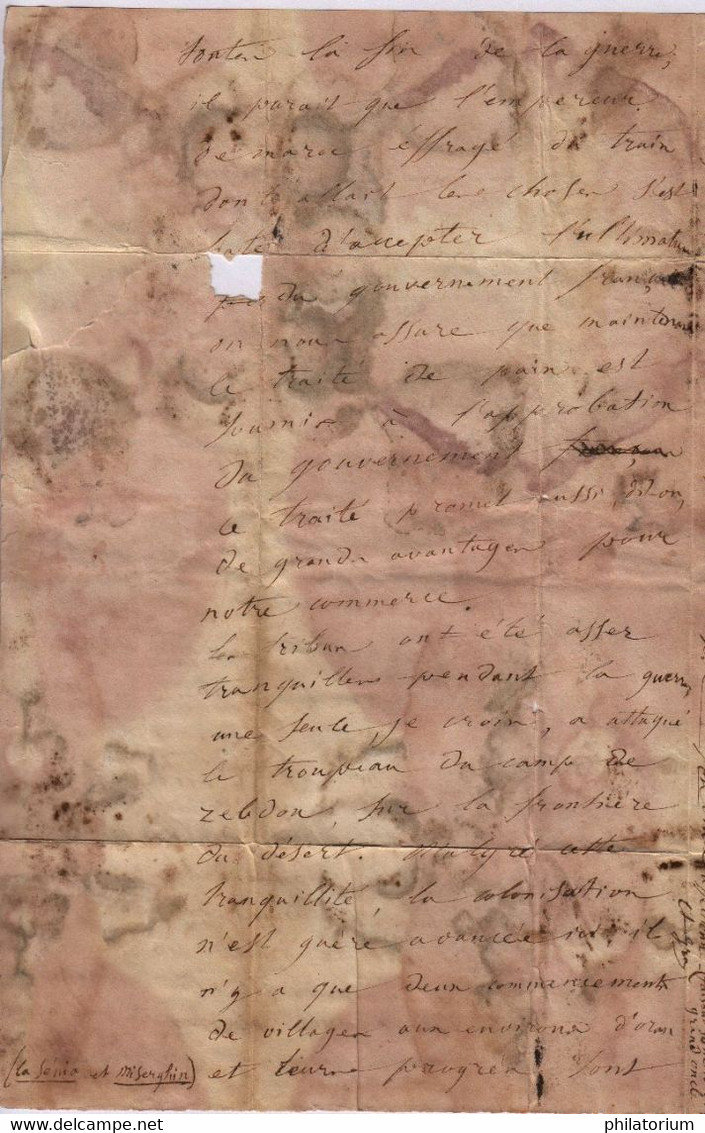 la fin de la guerre,
il parait que l'empereur
de maroc éffragé du train
dont allait les choses s'est
haté d'accepter l'ultimatum
du gouvernement français
on nous assure que maintenant
le traité de paix est
soumis à l'approbation
du gouvernement
ce traité promet aussi, dit on,
de grands avantages pour
notre commerce.
les tribus ont été assez
tranquilles pendant la guerre,
une seule, je crois, a attaqué
le troupeau du camp de
zebdou, sur la frontière
du désert. Malgré cette
tranquillité, la colonisation
n'est guéré avancée ici il
n'y a que deux commencements
de villages aux environs d'oran
(la sénia et miserghin) et leurs progrès sont
grand oncle
philatorium